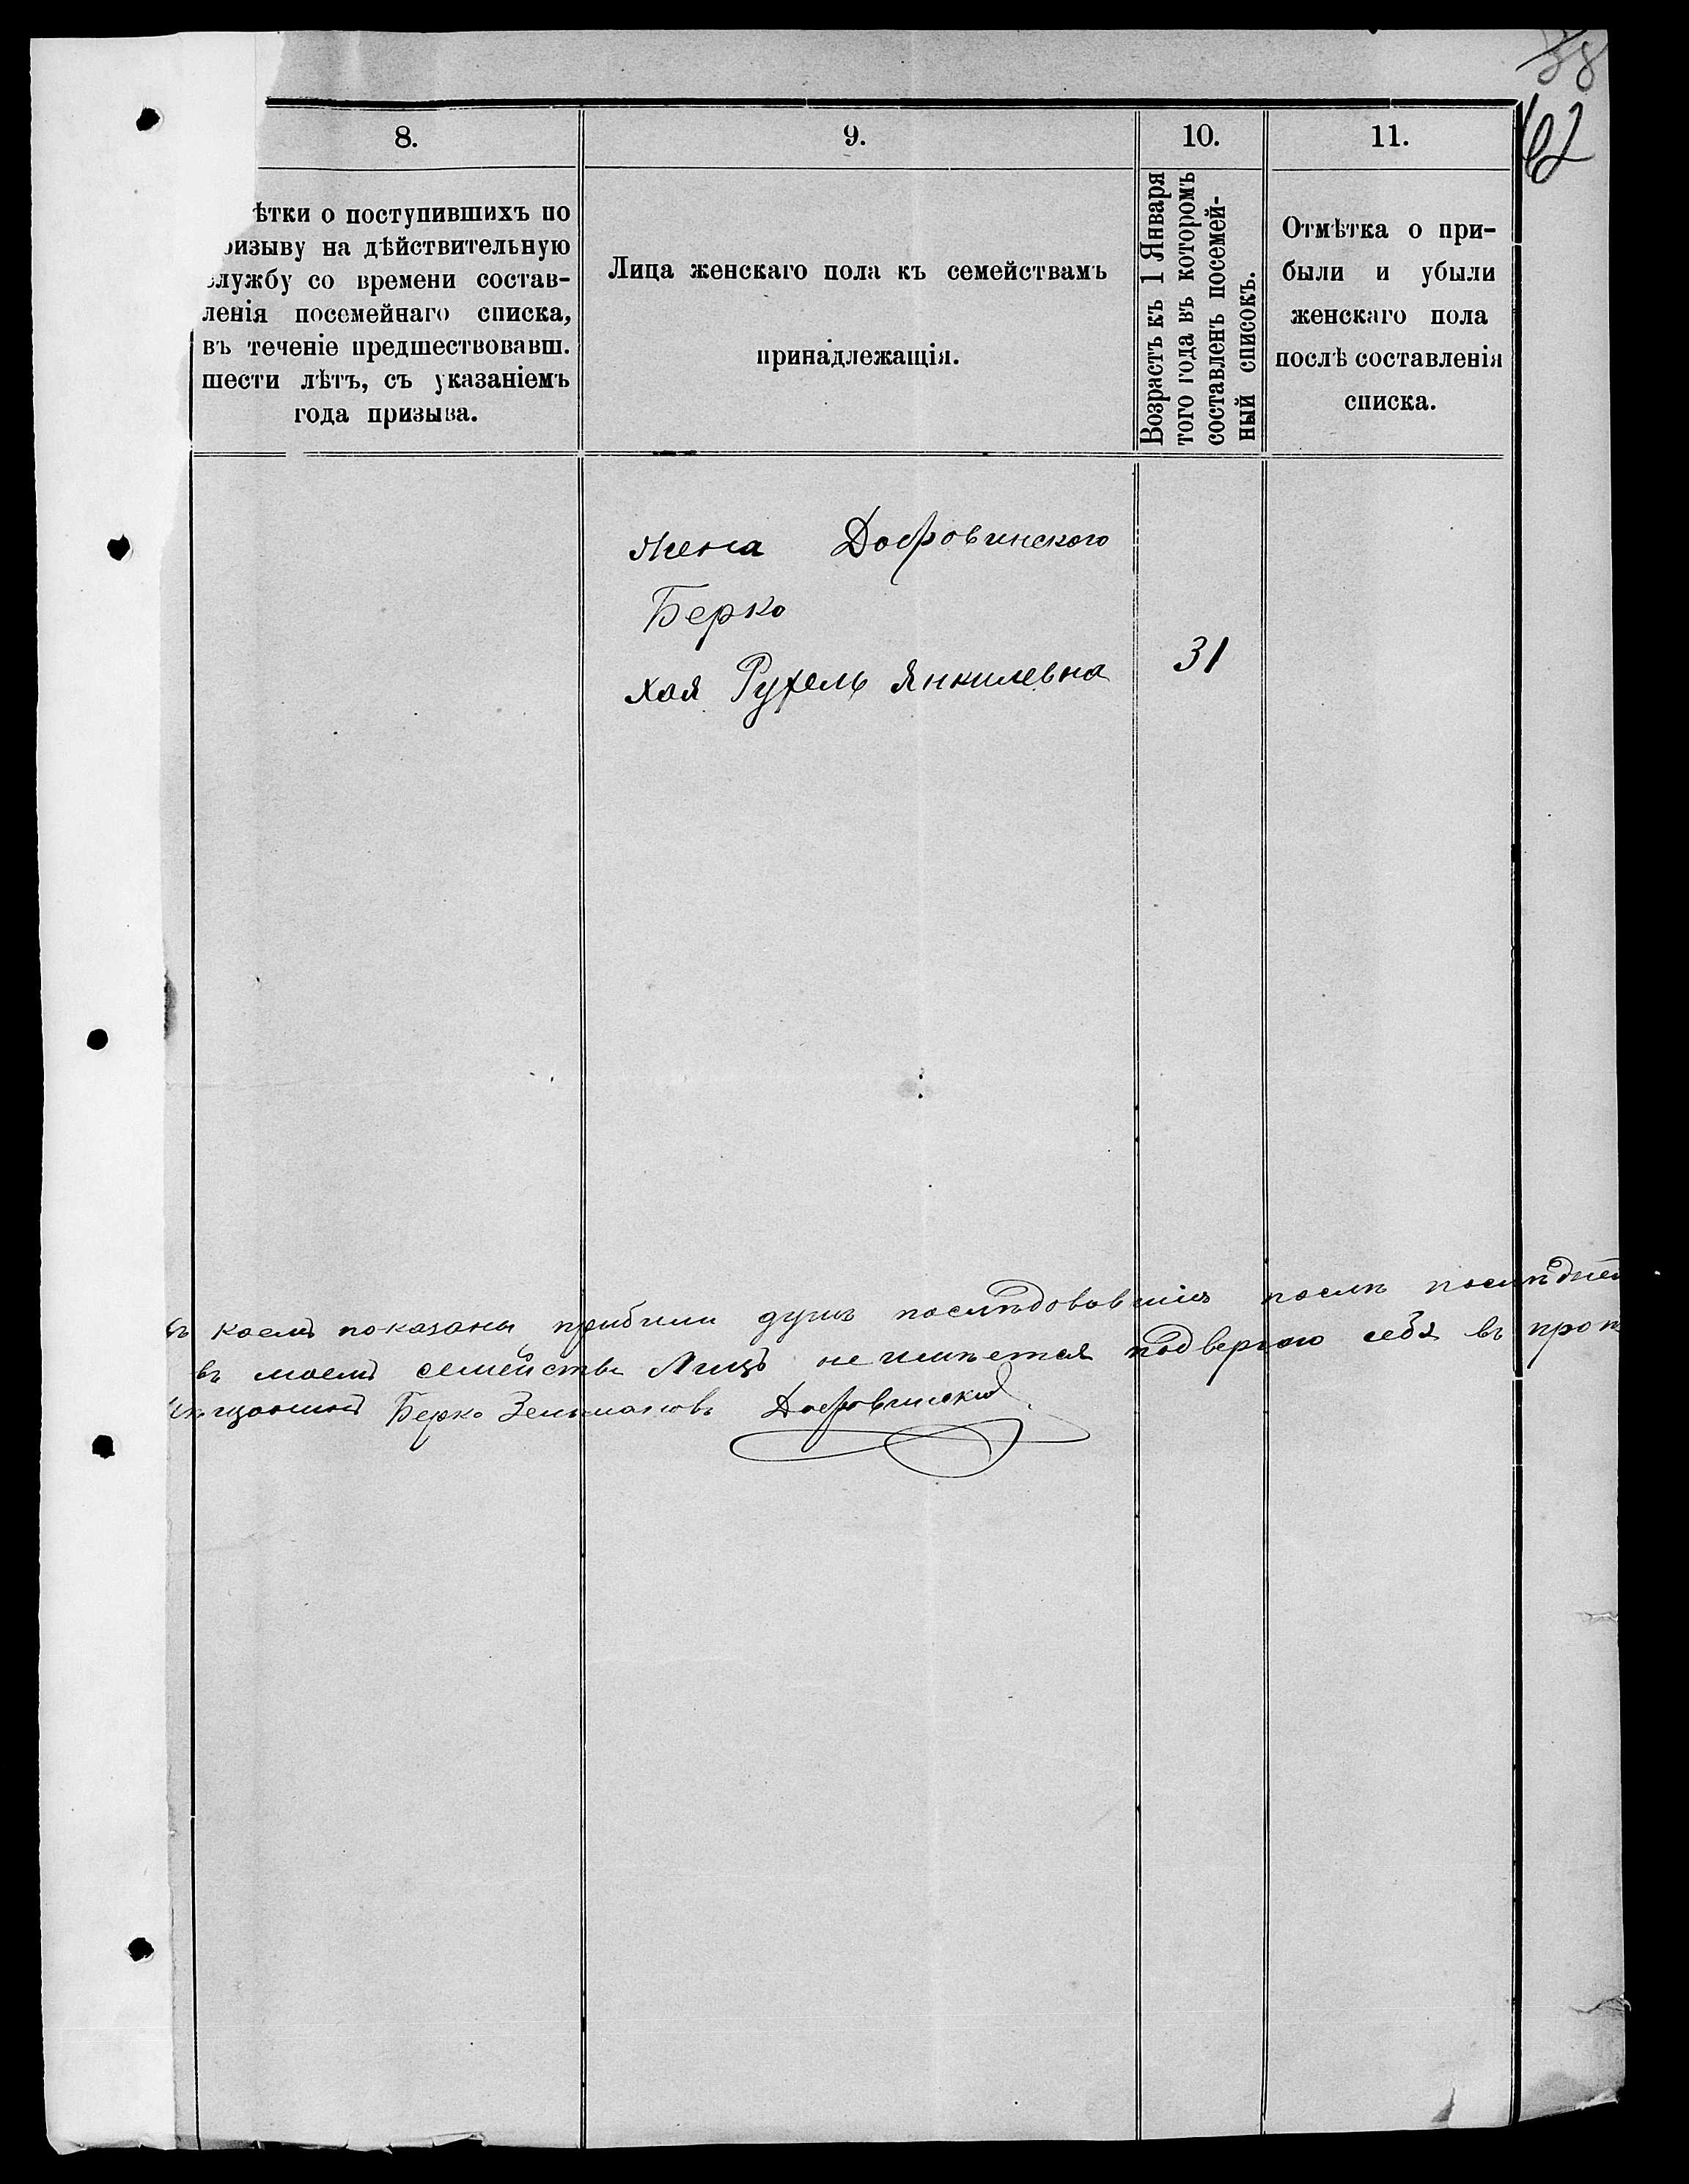 38
62
8.
ѣтки о поступившихъ по
ризыву на дѣйствительную
службу со времени состав-
ленія посемейнаго списка,
въ теченіе предшествовавш.
шести лѣтъ, съ указаніемъ
года призыва.
9.
Лица женскаго пола къ семействамъ
принадлежащія.
10.
Возрастъ къ 1 Января
того года въ которомъ
составленъ посемей-
ный списокъ.
11.
Отмѣтка о при-
были и убыли
женскаго пола
послѣ составленія
списка.
Жена Добровинского
Берко
Хая Рухель Янкилевна 31
въ коемъ показаны прибыли душъ послѣдовавшихъ послѣ послѣдней
въ моемъ семействе Лицъ не имѣется подвергаю себя въ прот
мѣщанинъ Берко Зельмановъ Добровинский